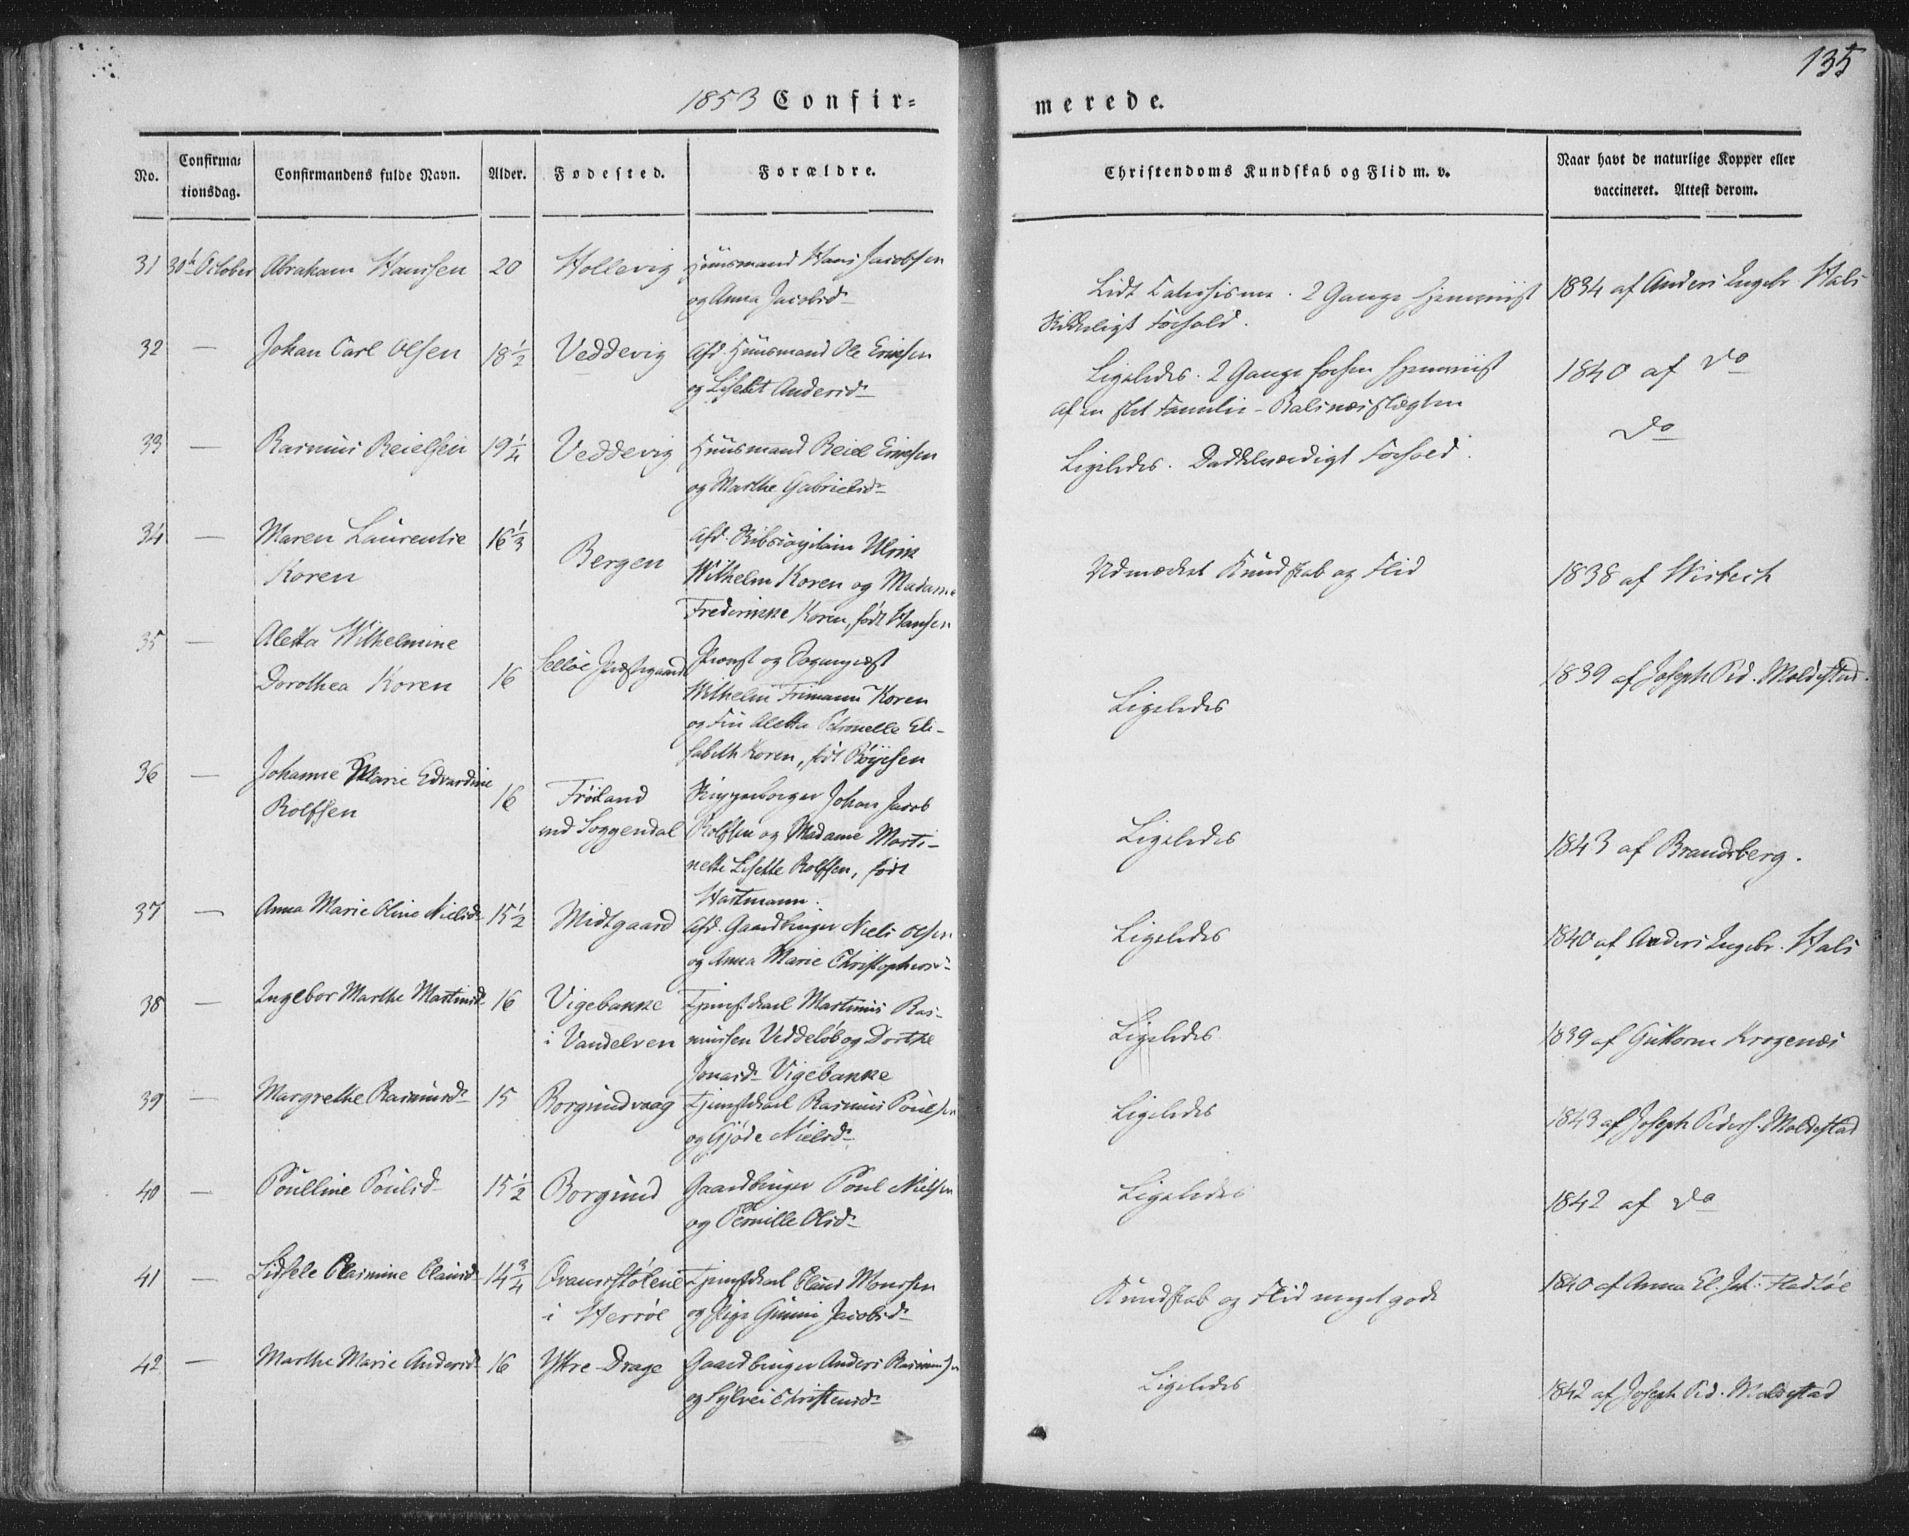 135
1853 Confir=
merede.
No.
Confirma=
tionsdag.
Confirmandens fulde Navn.
Alder.
Fødested.
Forældre.
Christendoms Kundskab og Flid m. v.
Naar havt de naturlige Kopper eller
vaccineret. Attest derom.
31 30te October Abraham Hansen 20 Hollevig Huusmand Hans Jacobsen
og Anna Jacobsd
Lidt Catechisme. 2 Gange
1834 af Anders Ingebr. Hals
Forhold.
32 — Johan Carl Olsen 18 1/2 Veddevig Afd. Huusmand Ole Ericsen
og Lisebet Andersd
Ligeledes. 2 Gange
af en slet Familie
1840 af do
33 — Rasmus Reielsen 19 1/4 Veddevig Huusmand Reiel Ericsen
og Marthe Gabrielsd
Ligeledes. Daddelværdigt Forhold.
do
34 — Maren Laurentie 16 1/3 Bergen Afd. Skibscapitain Ulrik
Koren
Wilhelm Koren og Madame
Frederikke Koren, født Hansen
Udmærket Kundskab og Flid
1838 af
35 — Aletta Wilhelmine
Dorothea Koren 16 Selløe Præstegaard Provst og Sognepræst
Wilhelm Frimann Koren
og Fru Aletta Petronelle Eli-
sabeth Koren, født
Ligeledes
1839 af Joseph Ped. Moldestad.
36 — Johanne Marie Edvardine
Rolfsen 16 Frøiland
ved Soggendal
Johan Jacob
Rolfsen og Madame Marti-
nette Lisette Rolfsen, født
Hartmann.
Ligeledes
1843 af Brandsberg.
37 — Anna Marie Oline Nielsd 15 1/2 Midtgaard Afd. Gaardbruger Niels Olsen
og Anna Marie Christophersd
Ligeledes
1840 af Anders Ingebr. Hals
38 — Ingebor Marthe Martinsd 16 Vigebakke
i Vandelven
Tjenstekarl Martinus Ras-
mussen Veddeløb og Dorthe
Jonasd Vigebakke
Ligeledes
1839 af Guttorm Krogenæs
39 — Margrethe Rasmusd 15 Borgundvaag Tjenstekarl Rasmus Poulsen
og Gjøde Nielsd
Ligeledes
1843 af Joseph Peders. Moldestad
40 — Poulline Poulsd 15 1/2 Borgund Gaardbruger Poul Nielsen
og Pernille Olsd
Ligeledes
1842 af do
41 — Lidsele Rasmine Clausd 14 3/4
i Herrøe
Tjenstekarl Claus Monsen
og Pige Gunni Jacobsd
Kundskab og Flid meget gode
1840 af Anna El.
42 — Marthe Marie Andersd 16 Yttre Drage Gaardbruger Anders Rasmussen
og Sylvei Christensd
Ligeledes
1842 af Joseph Ped. Moldestad